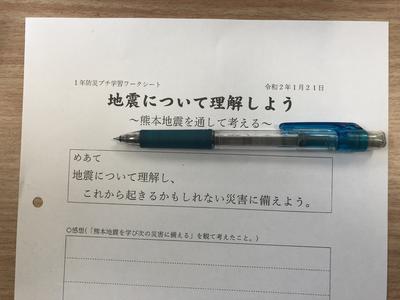 1年防災プチ学習ワークシート 令和2年1月21日
地震について理解しよう
～熊本地震を通して考える～
めあて
地震について理解し、
これから起きるかもしれない災害に備えよう。
○感想(「熊本地震を学び次の災害に備える」を観て考えたこと。)